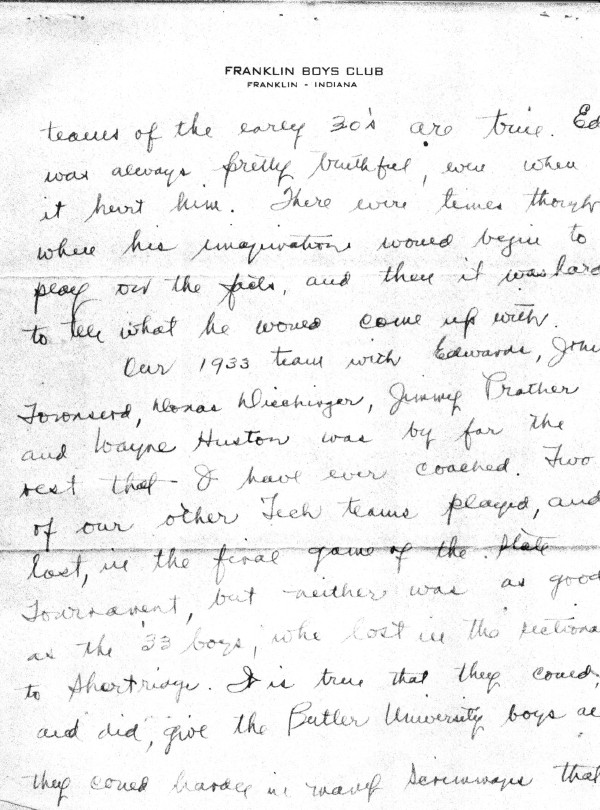 FRANKLIN BOYS CLUB
FRANKLIN - INDIANA
teams of the early 30's are true. Ed
was always pretty truthful, even when
it hurt him. There were times though
when his imagination would begin to
play on the facts, and then it was hard
to tell what he would come up with.
Our 1933 team with Edwards, John
Townsend, Donas Dischinger, Jimmy Prather
and Wayne Huston was by far the
best that I have ever coached. Two
of our other Tech teams played, and
lost, in the final game of the State
Tournament, but neither was as good
as the '33 boys, who lost in the sectional
to Shortridge. It is true that they could,
and did, give the Butler University boys al
they could handle in many scrimmages that